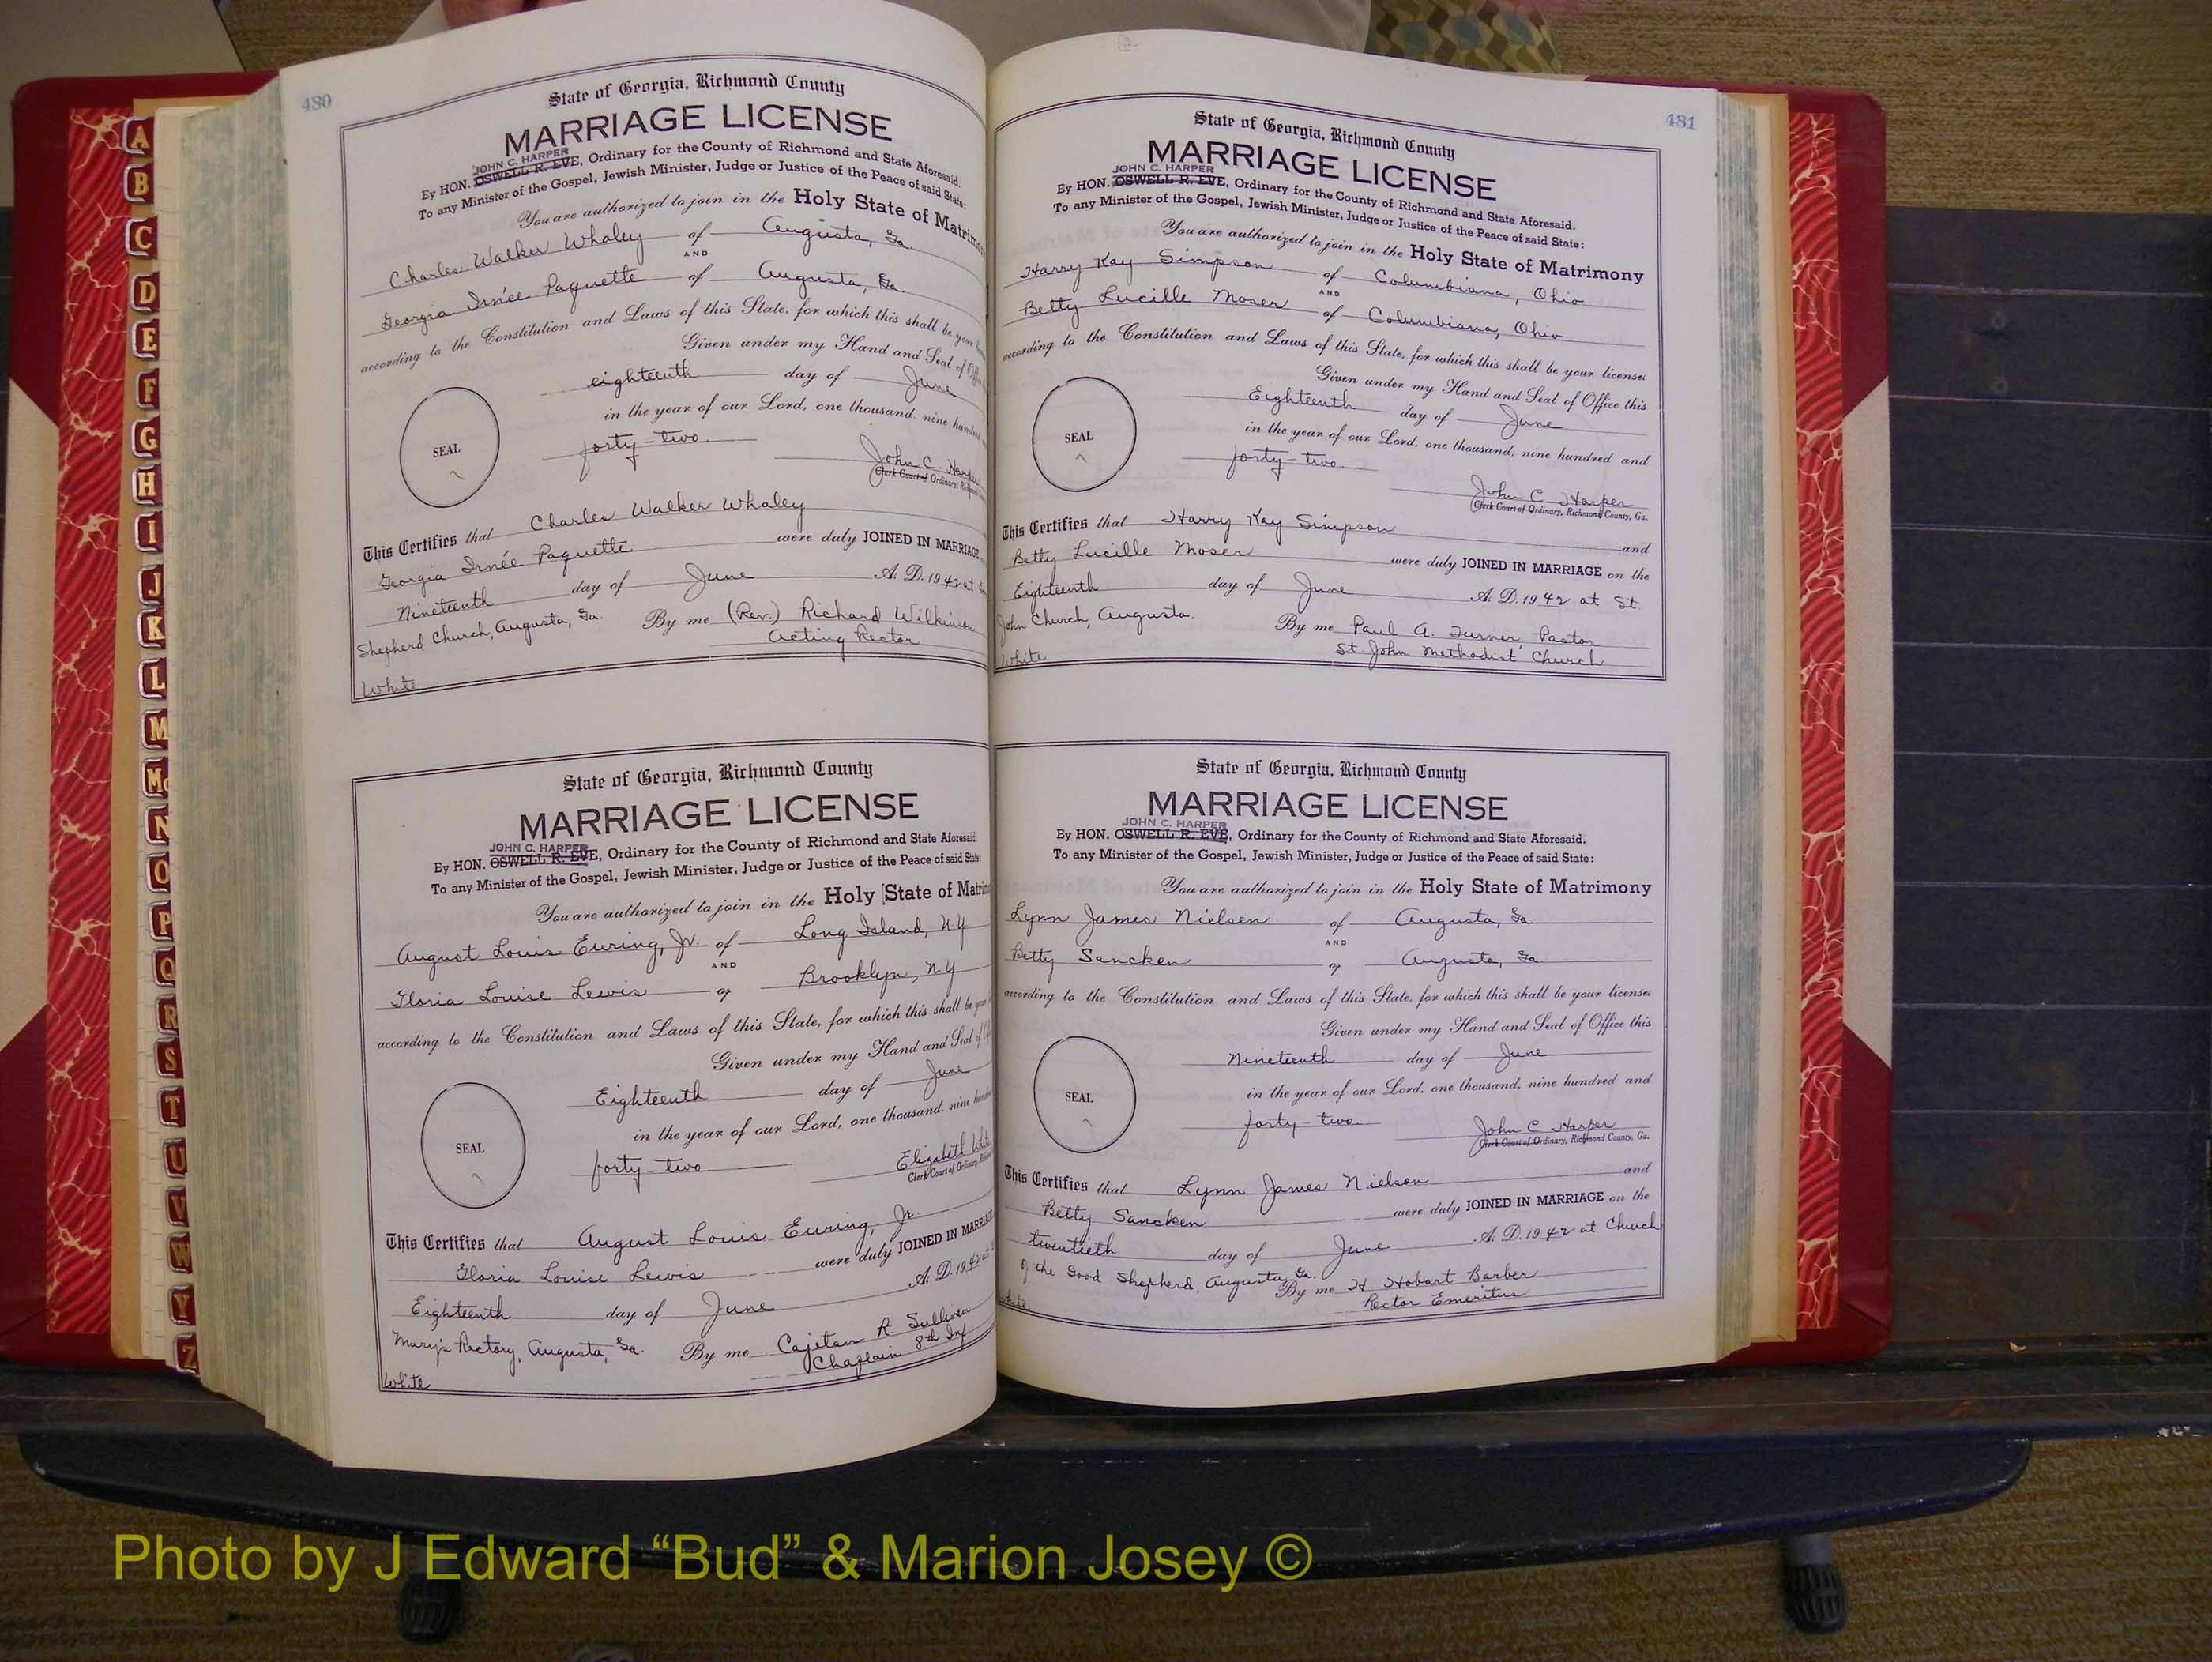 480
State of Georgia, Richmond County
MARRIAGE LICENSE
JOHN C. HARPER
By HON. OSWELL R. EVE, Ordinary for the County of Richmond and State Aforesaid.
To any Minister of the Gospel, Jewish Minister, Judge or Justice of the Peace of said State:
You are authorized to join in the Holy State of Matrimo
Charles Walker Whaley of Augusta, Ga.
AND
Georgia Irnée Paquette of Augusta, Ga.
according to the Constitution and Laws of this State, for which this shall be your
Given under my Hand and Seal of Offi
eighteenth day of June
in the year of our Lord, one thousand, nine hundred
forty-two
SEAL
John C. Harpe
Clerk Court of Ordinary, Richmond
This Certifies that Charles Walker Whaley
Georgia Irnée Paquette were duly JOINED IN MARRIAGE
Nineteenth day of June A. D. 1942 at
Shepherd Church, Augusta, Ga. By me (Rev.) Richard Wilkinson
Acting Rector
White
State of Georgia, Richmond County
MARRIAGE LICENSE
JOHN C. HARPER
By HON. OSWELL R. EVE, Ordinary for the County of Richmond and State Aforesaid.
To any Minister of the Gospel, Jewish Minister, Judge or Justice of the Peace of said State:
You are authorized to join in the Holy State of Matrim
August Louis Euring, Jr. of Long Island, N.Y.
AND
Gloria Louise Lewis of Brooklyn, N.Y.
according to the Constitution and Laws of this State, for which this shall be your
Given under my Hand and Seal of
Eighteenth day of June
in the year of our Lord, one thousand, nine hundred
forty-two
SEAL
Elizabeth
Clerk Court of Ordinary,
This Certifies that August Louis Euring, Jr.
Gloria Louise Lewis were duly JOINED IN MARRIAG
Eighteenth day of June A. D. 1942 at
Mary's Rectory, Augusta, Ga. By me Cajetan R. Sullivan
Chaplain 8th Inf.
White
481
State of Georgia, Richmond County
MARRIAGE LICENSE
JOHN C. HARPER
By HON. OSWELL R. EVE, Ordinary for the County of Richmond and State Aforesaid.
To any Minister of the Gospel, Jewish Minister, Judge or Justice of the Peace of said State:
You are authorized to join in the Holy State of Matrimony
Harry Kay Simpson of Columbiana, Ohio
AND
Betty Lucille Moser of Columbiana, Ohio
according to the Constitution and Laws of this State, for which this shall be your license.
Given under my Hand and Seal of Office this
Eighteenth day of June
in the year of our Lord, one thousand, nine hundred and
forty-two.
SEAL
John C Harper
Clerk Court of Ordinary, Richmond County, Ga.
This Certifies that Harry Kay Simpson and
Betty Lucille Moser were duly JOINED IN MARRIAGE on the
Eighteenth day of June A. D. 1942 at St.
John Church, Augusta. By me Paul A. Turner, Pastor
St. John Methodist Church
White
State of Georgia, Richmond County
MARRIAGE LICENSE
JOHN C. HARPER
By HON. OSWELL R. EVE, Ordinary for the County of Richmond and State Aforesaid.
To any Minister of the Gospel, Jewish Minister, Judge or Justice of the Peace of said State:
You are authorized to join in the Holy State of Matrimony
Lynn James Nielsen of Augusta, Ga.
AND
Betty Sancken of Augusta, Ga.
according to the Constitution and Laws of this State, for which this shall be your license.
Given under my Hand and Seal of Office this
Nineteenth day of June
in the year of our Lord, one thousand, nine hundred and
forty-two.
SEAL
John C Harper
Clerk Court of Ordinary, Richmond County, Ga.
This Certifies that Lynn James Nielson and
Betty Sancken were duly JOINED IN MARRIAGE on the
twentieth day of June A. D. 1942 at Church
of the Good Shepherd, Augusta, Ga. By me H. Hobart Barber
Rector Emeritus
White
A
B
C
D
E
F
G
H
I
J
K
L
M
Mc
N
O
P
Q
R
S
T
U
V
W
Y
Z
Photo by J Edward “Bud” & Marion Josey ©